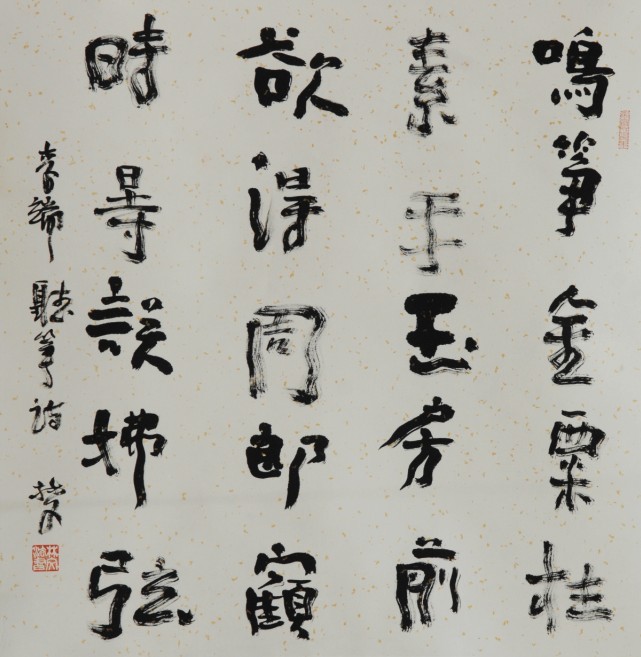 鳴箏金粟柱
素手玉房前
欲得周郎顧
時時誤拂弦
李端聽箏詩